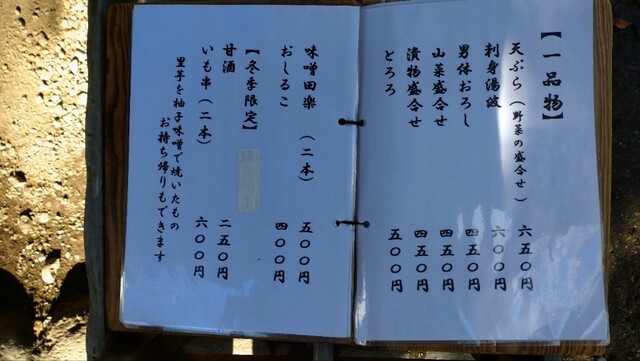 【一品物】
天ぷら（野菜の盛合せ） 六五〇円
刺身湯波 六〇〇円
男体おろし 四五〇円
山菜盛合せ 四五〇円
漬物盛合せ 四五〇円
とろろ 五〇〇円
味噌田楽（二本） 五〇〇円
おしるこ 四〇〇円
【冬季限定】
甘酒 二五〇円
いも串（二本） 六〇〇円
里芋を柚子味噌で焼いたもの
お持ち帰りもできます